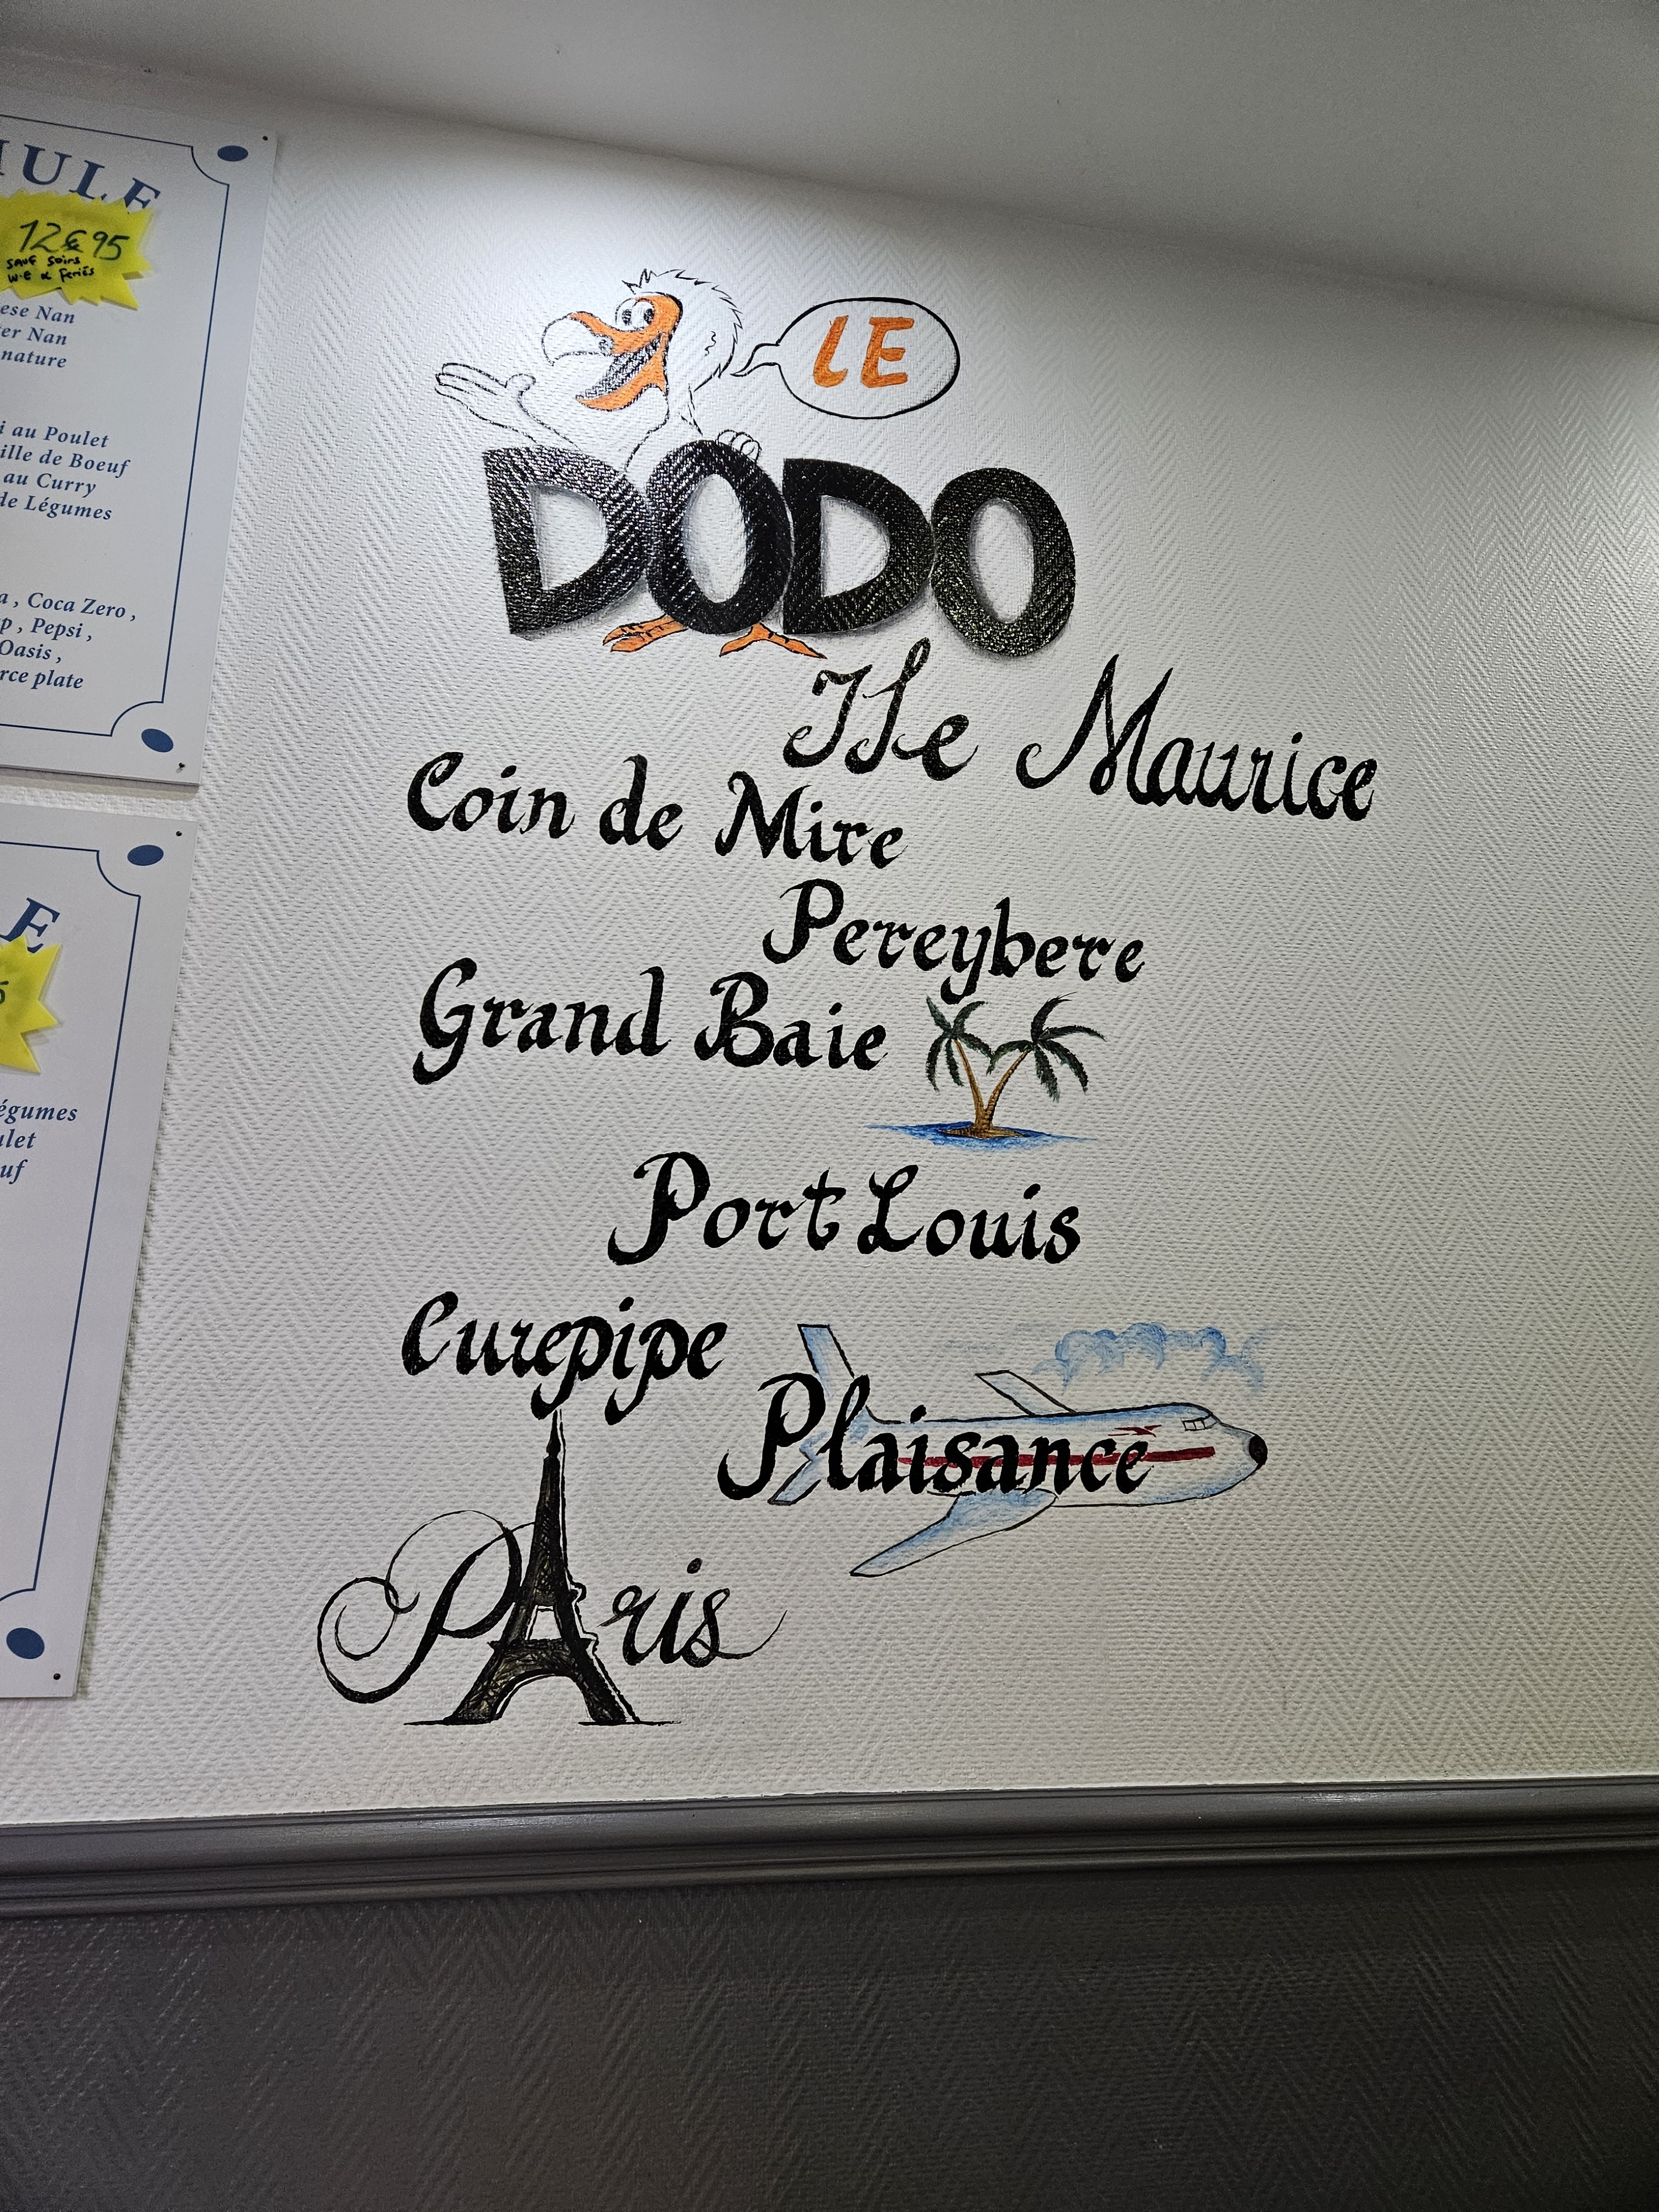 12€95
sauf soirs
w.e & feriés
Nan
Nan
nature
au Poulet
de Boeuf
au Curry
de Légumes
Coca Zero ,
Pepsi ,
Oasis ,
plate
LE
DODO
Ile Maurice
Coin de Mire
Pereybere
Grand Baie
Port Louis
Curepipe
Plaisance
PAris